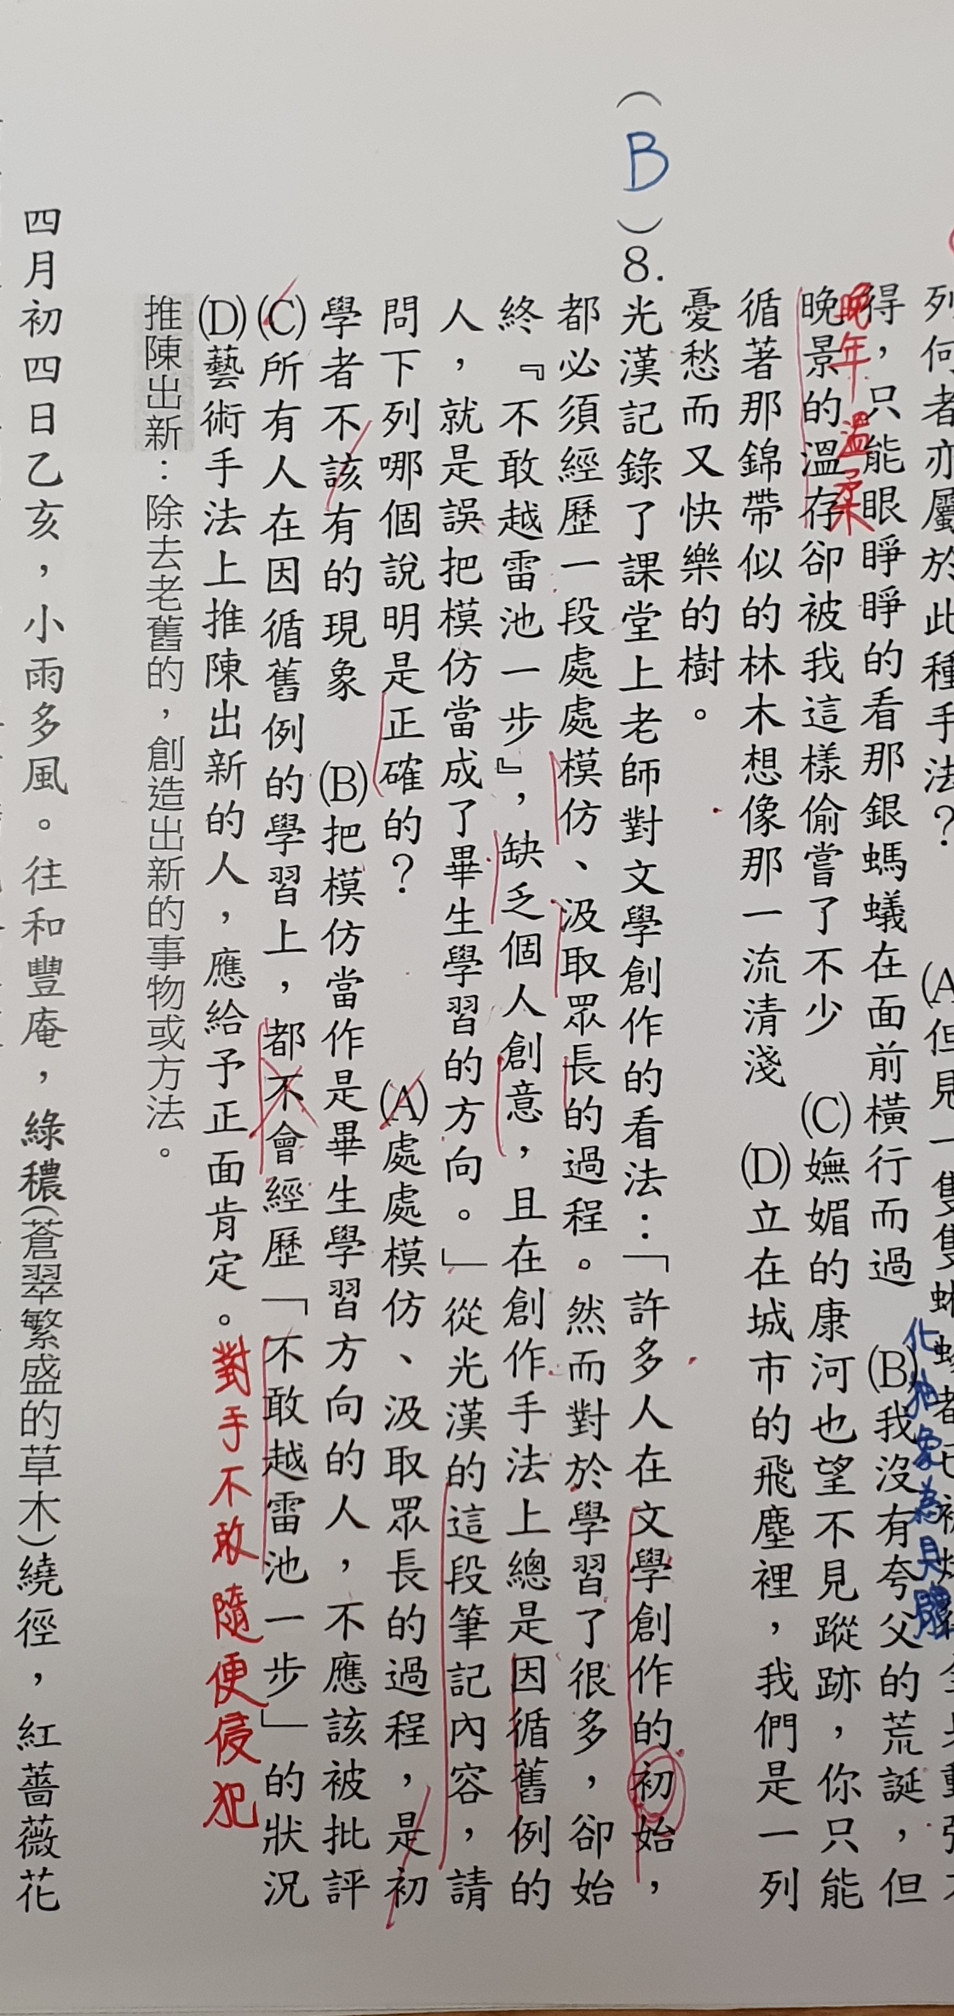 列何者亦屬於此種手法？ (A)但見一隻隻蜥蜴者
得，只能眼睜睜的看那銀螞蟻在面前橫行而過 (B)我沒有夸父的荒誕，但
化抽象為具體
晚年溫柔
晚景的溫存卻被我這樣偷嘗了不少 (C)嫵媚的康河也望不見蹤跡，你只能
循著那錦帶似的林木想像那一流清淺 (D)立在城市的飛塵裡，我們是一列
憂愁而又快樂的樹。
（B）8.光漢記錄了課堂上老師對文學創作的看法：「許多人在文學創作的初始，
都必須經歷一段處處模仿、汲取眾長的過程。然而對於學習了很多，卻始
終『不敢越雷池一步』，缺乏個人創意，且在創作手法上總是因循舊例的
人，就是誤把模仿當成了畢生學習的方向。」從光漢的這段筆記內容，請
問下列哪個說明是正確的？ (A)處處模仿、汲取眾長的過程，是初
學者不該有的現象 (B)把模仿當作是畢生學習方向的人，不應該被批評
(C)所有人在因循舊例的學習上，都不會經歷「不敢越雷池一步」的狀況
(D)藝術手法上推陳出新的人，應給予正面肯定。
對手不敢隨便侵犯
推陳出新：除去老舊的，創造出新的事物或方法。
四月初四日乙亥，小雨多風。往和豐庵，綠穠(蒼翠繁盛的草木)繞徑，紅薔薇花